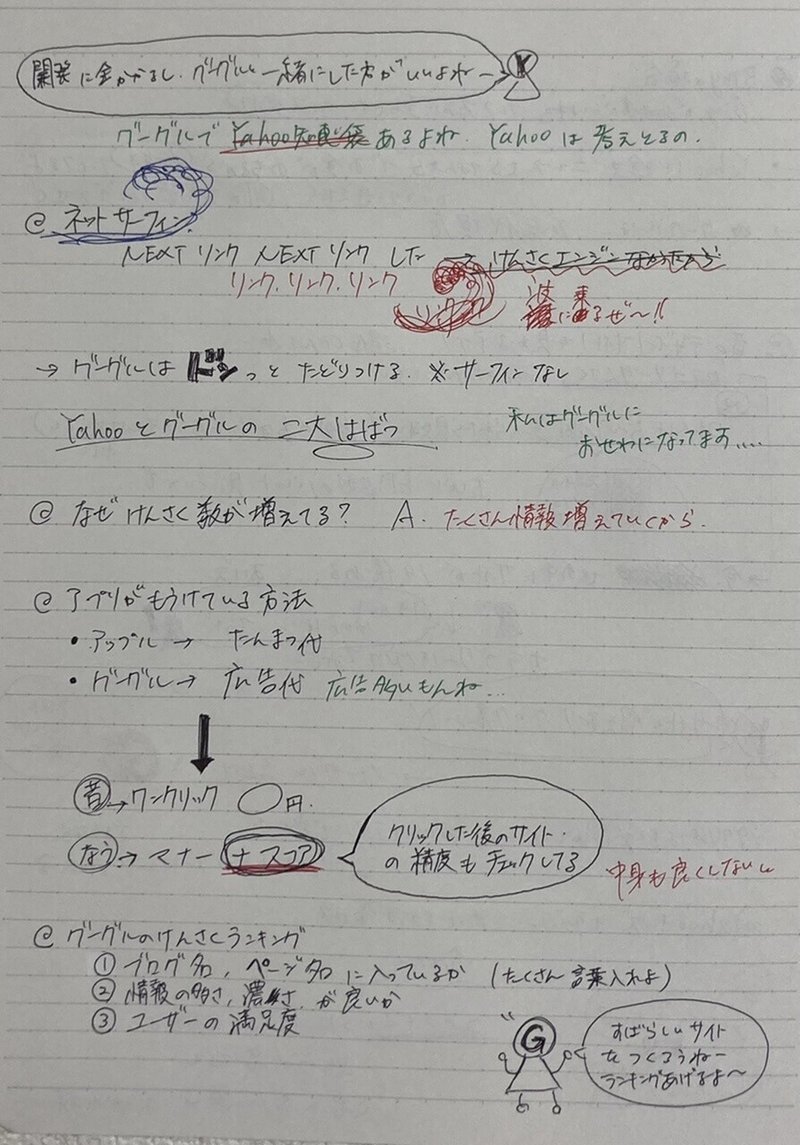 開発に金かかるし、グーグルと一緒にした方がいいよねー
Y
グーグルで Yahoo知恵袋 あるよね、Yahooは考えとるの。
@ ネットサーフィン
NEXTリンク NEXTリンク した → けんさくエンジンなかったから
リンク、リンク、リンク
波に乗るぜ〜!!
→ グーグルは ドンっと たどりつける。 ※サーフィンなし
Yahooとグーグルの 二大はばつ
私はグーグルに
おせわになってます.....
@ なぜ けんさく数が増えてる? A. たくさん情報増えていくから。
@ アプリがもうけている方法
・アップル → たんまつ代
・グーグル → 広告代 広告Aguもんね...
昔→ワンクリック ◯円.
なう→マナー + スコア
クリックした後のサイト・
の精度もチェックしてる
中身も良くしないと
@ グーグルのけんさくランキング
① ブログ名, ページ名 に入っているか (たくさん言葉入れよ)
② 情報の多さ, 濃さ, が良いか
③ ユーザーの満足度
G
すばらしいサイト
をつくろうねー
ランキングあげるよ〜